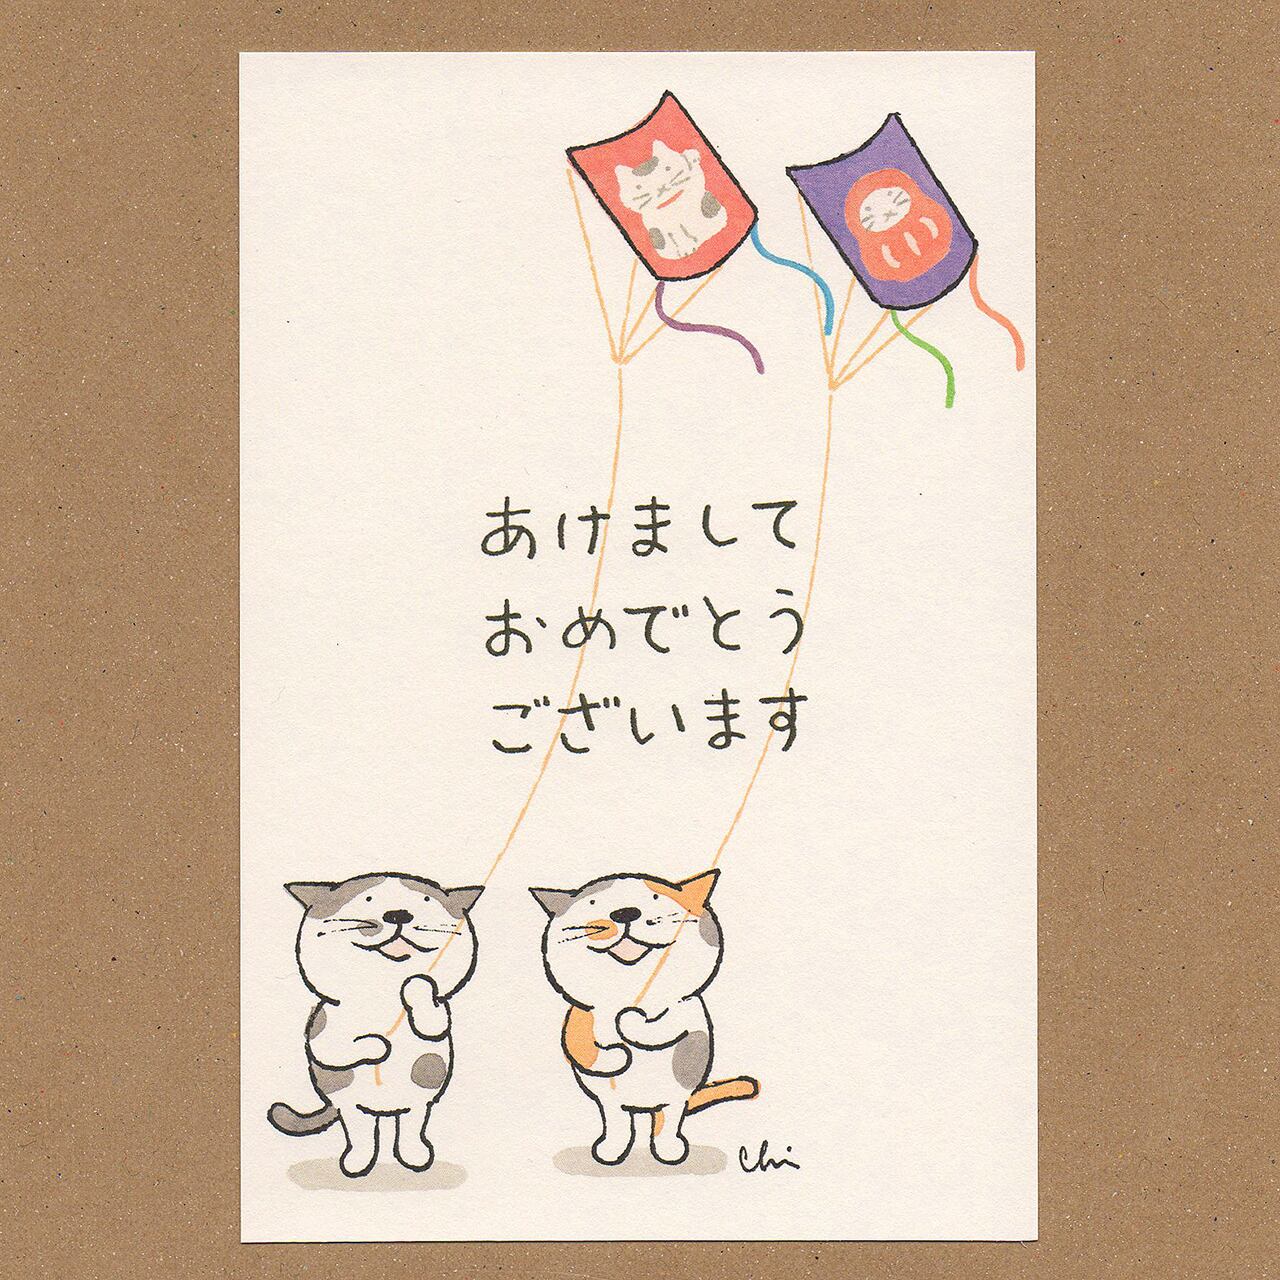 あけまして
おめでとう
ございます
Chi